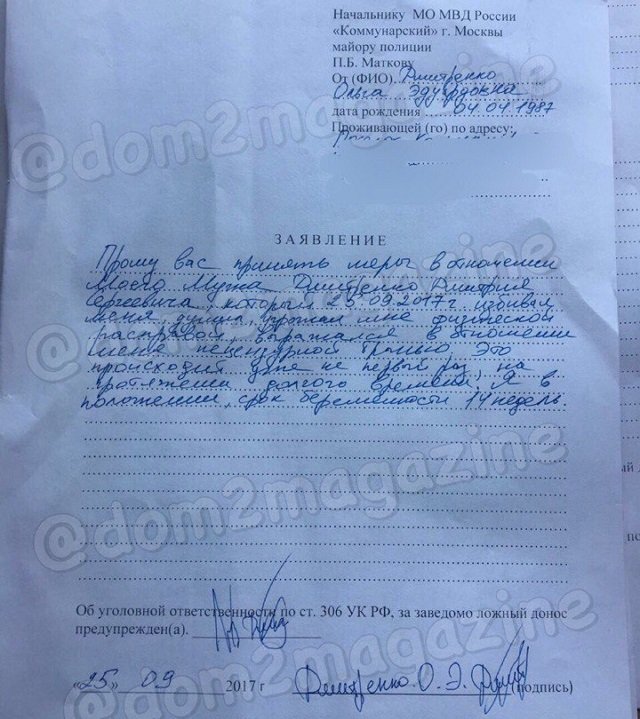 Начальнику МО МВД России
«Коммунарский» г. Москвы
майору полиции
П.Б. Маткову
От (ФИО) Дмитренко
Ольга Эдуардовна
дата рождения 04 04 1987
Проживающей (го) по адресу:
@dom2magazine
ЗАЯВЛЕНИЕ
Прошу вас принять меры в отношении
моего мужа Дмитренко Дмитрия
Сергеевича, который 25.09.2017 г. избивал
меня, душил, угрожал мне физической
расправой, выражался в отношении
меня нецензурной бранью. Это
происходит уже не первый раз, на
протяжении долгого времени. Я в
положении, срок беременности 14 недель.
@dom2magazine
@dom2magazine
Об уголовной ответственности по ст. 306 УК РФ, за заведомо ложный донос
предупрежден(а).
«25» 09 2017 г Дмитренко О. Э. (подпись)
@dom2magazine